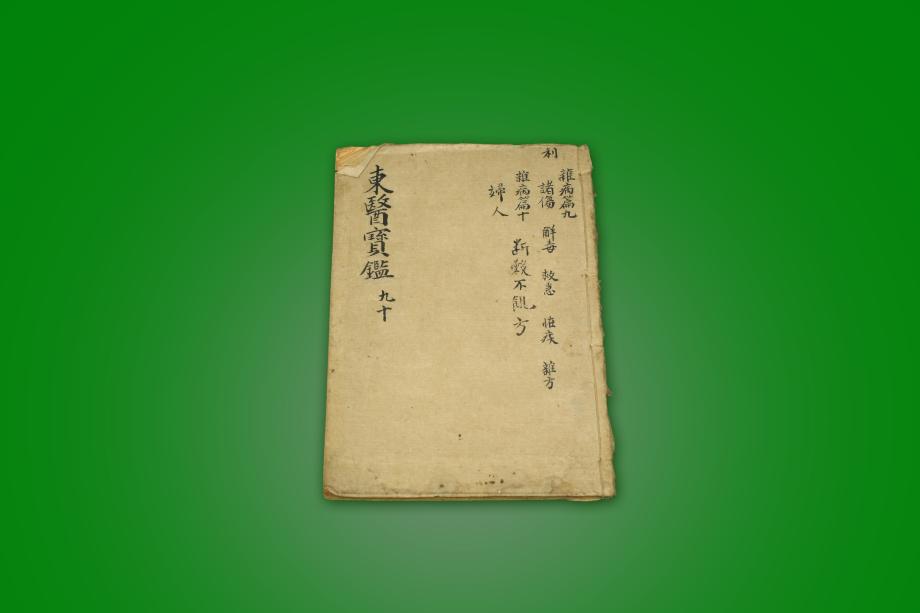 雜病篇九
利
諸傷 解毒 救急 怪疾 雜方
雜病篇十
断穀不飢方
婦人
東醫寶鑑 九十